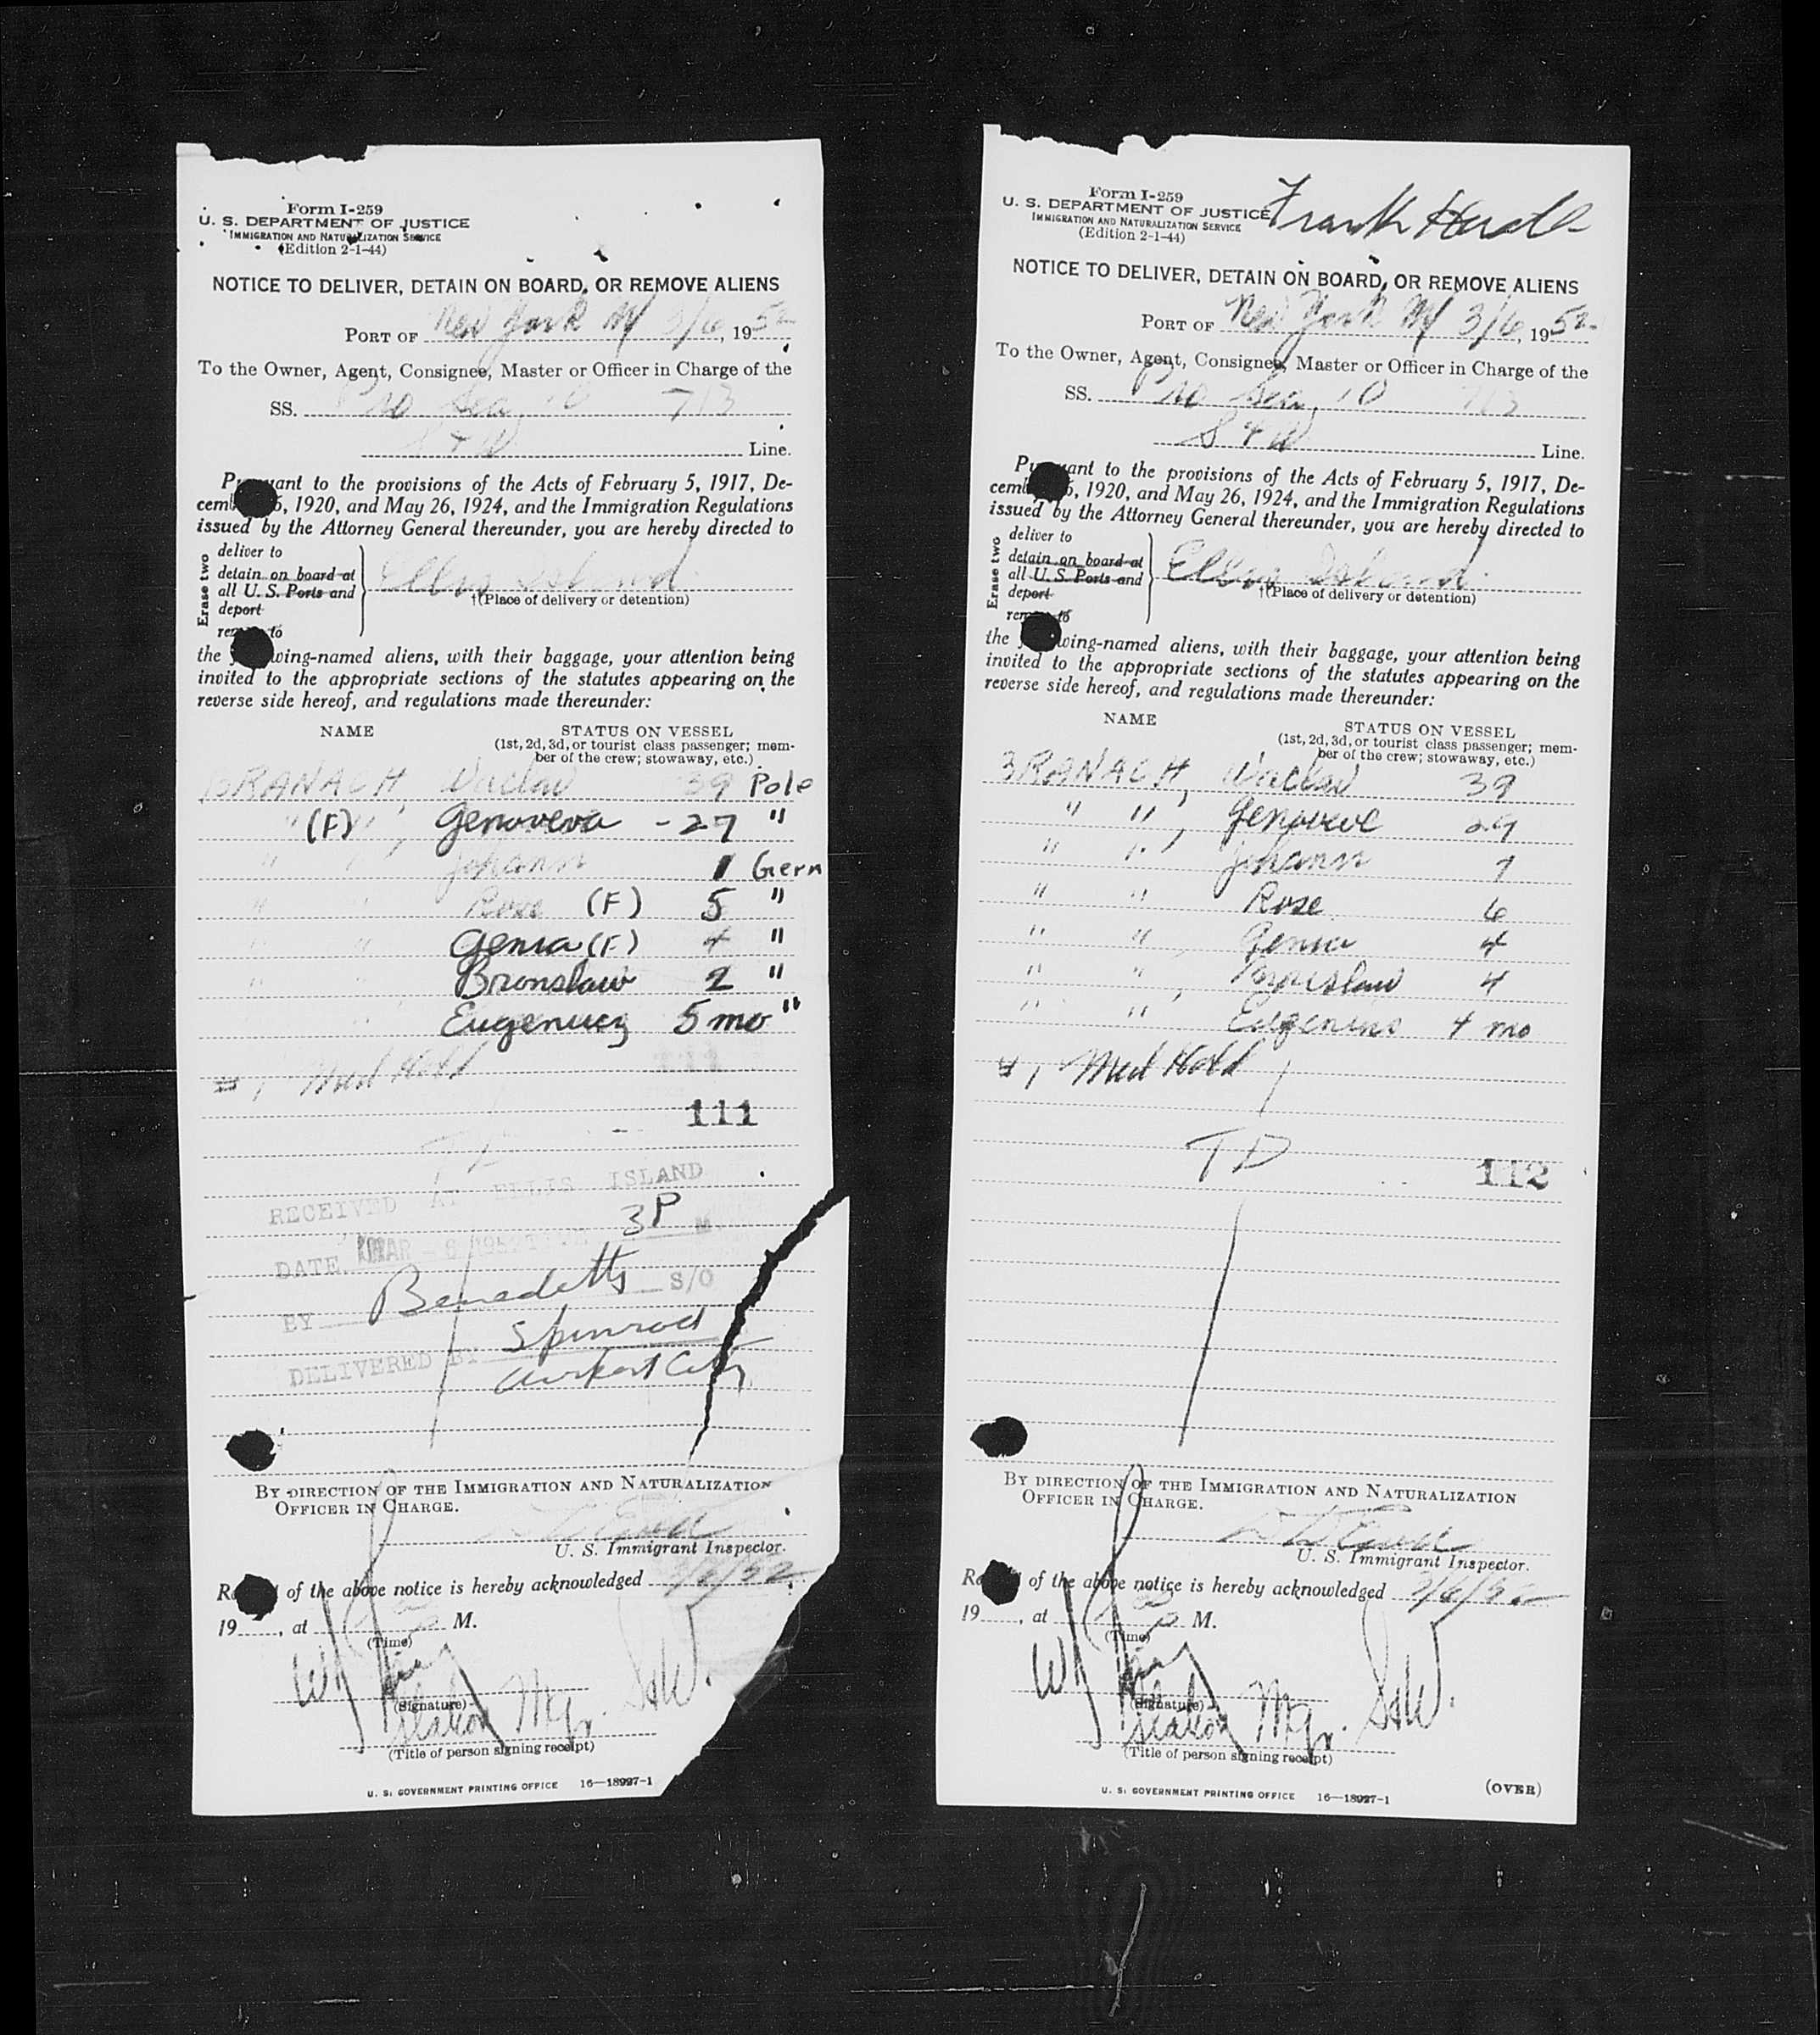 Form I-259
U. S. DEPARTMENT OF JUSTICE
IMMIGRATION AND NATURALIZATION SERVICE
(Edition 2-1-44)
NOTICE TO DELIVER, DETAIN ON BOARD, OR REMOVE ALIENS
PORT OF New York NY 3/6, 1952
To the Owner, Agent, Consignee, Master or Officer in Charge of the
SS. 713
S & W Line.
Pursuant to the provisions of the Acts of February 5, 1917, De-
cember 26, 1920, and May 26, 1924, and the Immigration Regulations
issued by the Attorney General thereunder, you are hereby directed to
Erase two
deliver to
detain on board at
all U. S. Ports and
deport
remove to
Ellis Island
†(Place of delivery or detention)
the following-named aliens, with their baggage, your attention being
invited to the appropriate sections of the statutes appearing on the
reverse side hereof, and regulations made thereunder:
NAME STATUS ON VESSEL
(1st, 2d, 3d, or tourist class passenger; mem-
ber of the crew; stowaway, etc.)
BRANACH, Waclaw 39 Pole
" (F) " , Genoveva - 27 "
" " , Johann 1 Germ
" " Rose (F) 5 "
" " Genia (F) 4 "
" " Bronslaw 2 "
" " Eugenucz 5 mo "
Med Hold
111
TD
RECEIVED AT ELLIS ISLAND
DATE MAR - 6 1952 TIME 3P M
BY Benedetto S/O
DELIVERED BY Spinrad
Airport City
BY DIRECTION OF THE IMMIGRATION AND NATURALIZATION
OFFICER IN CHARGE.
U. S. Immigrant Inspector.
Receipt of the above notice is hereby acknowledged 3/6/52
19 , at M.
(Time)
(Signature)
Station Mgr. S&W.
(Title of person signing receipt)
U. S. GOVERNMENT PRINTING OFFICE 16—18927-1
Form I-259
U. S. DEPARTMENT OF JUSTICE
IMMIGRATION AND NATURALIZATION SERVICE
(Edition 2-1-44)
Frank
NOTICE TO DELIVER, DETAIN ON BOARD, OR REMOVE ALIENS
PORT OF New York NY 3/6, 1952
To the Owner, Agent, Consignee, Master or Officer in Charge of the
SS. 713
S & W Line.
Pursuant to the provisions of the Acts of February 5, 1917, De-
cember 26, 1920, and May 26, 1924, and the Immigration Regulations
issued by the Attorney General thereunder, you are hereby directed to
Erase two
deliver to
detain on board at
all U. S. Ports and
deport
remove to
Ellis Island
†(Place of delivery or detention)
the following-named aliens, with their baggage, your attention being
invited to the appropriate sections of the statutes appearing on the
reverse side hereof, and regulations made thereunder:
NAME STATUS ON VESSEL
(1st, 2d, 3d, or tourist class passenger; mem-
ber of the crew; stowaway, etc.)
BRANACH, Waclaw 39
" " , Genoveve 29
" " , Johann 7
" " Rose 6
" " Genia 4
" " , Bronislaw 4
" " Eugenius 4 mo
Med Hold
TD
112
BY DIRECTION OF THE IMMIGRATION AND NATURALIZATION
OFFICER IN CHARGE.
U. S. Immigrant Inspector.
Receipt of the above notice is hereby acknowledged 3/6/52
19 , at M.
(Time)
(Signature)
Station Mgr. S&W.
(Title of person signing receipt)
U. S. GOVERNMENT PRINTING OFFICE 16—18927-1 (OVER)